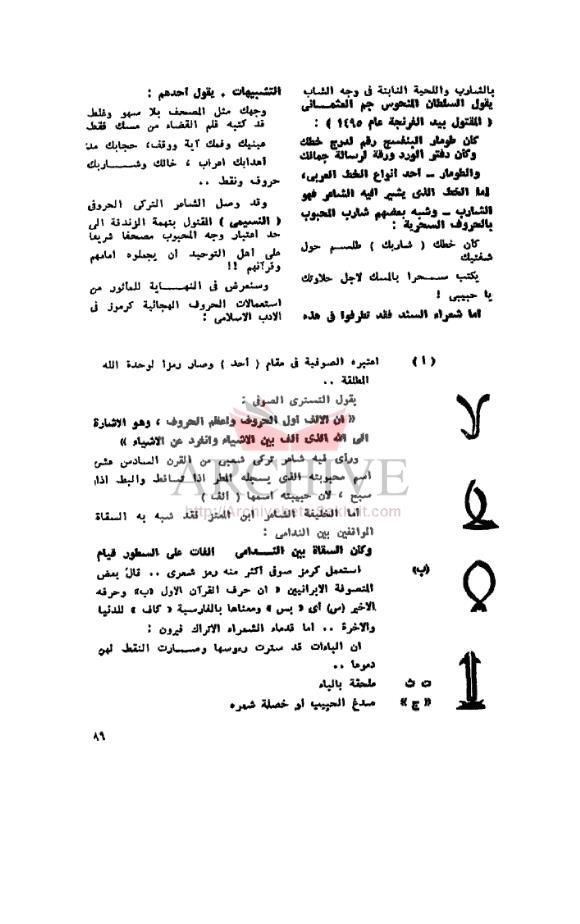 بالشارب واللحية النابتة فى وجه الشاب
يقول السلطان المنحوس جم العثمـــانى
( المقتول بيد الفرنجة عام ١٤٩٥ ) :
كان طومار البنفسج رقم لدرج خطك
وكأن دفتر الورد ورقة لرسالة جمالك
والطومار ــ احد أنواع الخط العربى،
اما الخط الذى يشير اليه الشاعر فهو
الشارب ــ وشبه بعضهم شارب المحبوب
بالحروف السحرية :
كان خطك ( شاربك ) طلسم حول
شفتيك
يكتب ســـحرا بالمسك لاجل حلاوتك
يا حبيبى !
اما شعراء السند فقد تطرفوا فى هذه
التشبيهات . يقول أحدهم :
وجهك مثل المصحف بلا سهو وغلط
قد كتبه قلم القضاء من مسك فقط
عينيك وفمك آية ووقف، حجابك مد
أهدابك اعراب ، خالك وشـــــاربك
حروف ونقط ..
وقد وصل الشاعر التركى الحروفى
( النسيمى ) المقتول بتهمة الزندقة الى
حد اعتبار وجه المحبوب مصحفا شريفا
على أهل التوحيد أن يجعلوه امامهم
وقرآنهم !!
وسنعرض فى النهـــاية للمأثور من
استعمالات الحروف الهجائية كرموز فى
الادب الاسلامى :
( أ ) اعتبره الصوفية فى مقام ( أحد ) وصار رمزا لوحدة الله
المطلقة ..
يقول التسترى الصوفى :
« ان الالف أول الحروف واعظم الحروف ، وهو الاشارة
الى الله الذى ألف بين الاشياء وانفرد عن الاشياء »
ورأى فيه شاعر تركى شعبى من القرن السادس عشر
اسم محبوبته الذى يسجله المطر اذا تساقط والبط اذا
سبح ، لأن حبيبته اسمها ( ألف )
ARCHIVE
http://Archivebeta.Sakhrit.com
أما الخليفة الشاعر ابن المعتز فقد شبه به السقاة
الواقفين بين الندامى :
وكأن السقاة بين النـــدامى الفات على السطور قيام
(ب) استعمل كرمز صوفى أكثر منه رمز شعرى .. قال بعض
المتصوفة الايرانيين « ان حرف القرآن الاول «ب» وحرفه
الاخير (س) أى « بس » ومعناها بالفارسية « كاف » للدنيا
والاخرة .. أما قدماء الشعراء الاتراك فيرون :
ان الباءات قد سترت رءوسها وصـــارت النقط لهن
دموعا ..
ت ث ملحقة بالباء
« ج » صدغ الحبيب أو خصلة شعره
٨٩